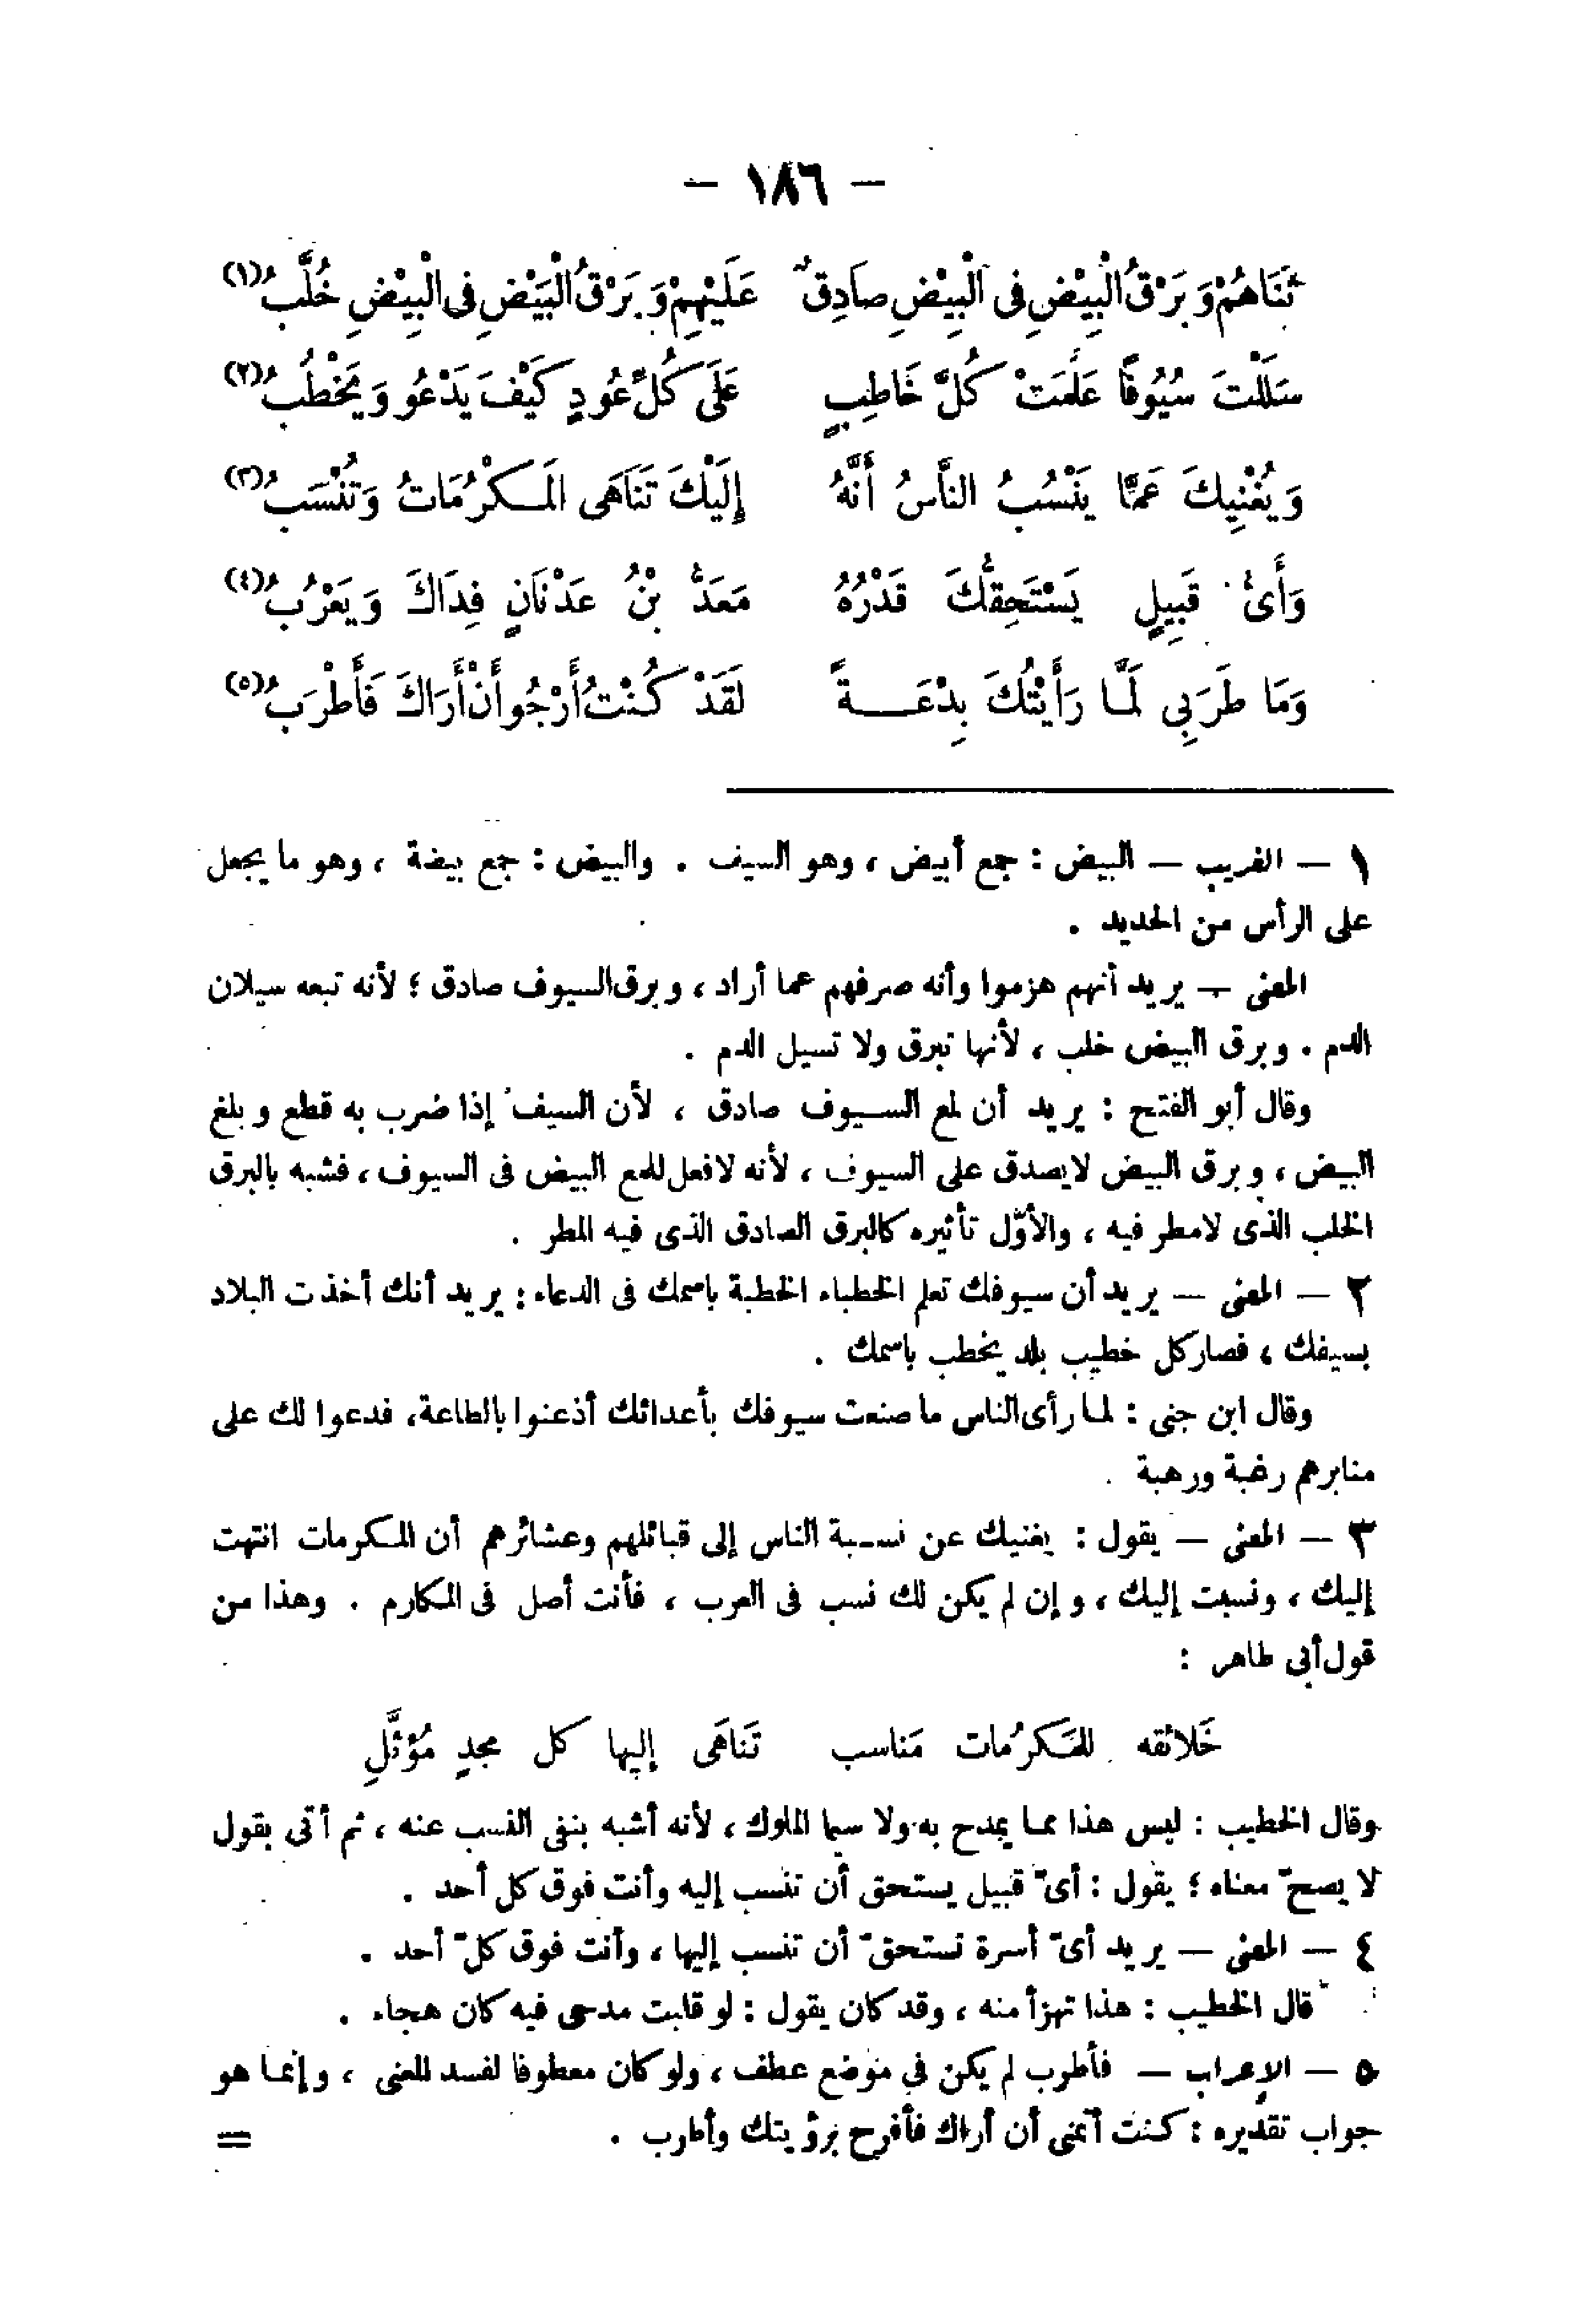 — ١٨٦ —
ثَنَاهُمْ وَبَرْقُ الْبِيْضِ فِى الْبِيْضِ صَادِقٌ عَلَيْهِمْ وَبَرْقُ الْبَيْضِ فِى الْبِيْضِ خُلَّبُ (١)
سَلَلْتَ سُيُوفًا عَلَّمَتْ كُلَّ خَاطِبٍ عَلَى كُلِّ عُودٍ كَيْفَ يَدْعُو وَيَخْطُبُ (٢)
وَيُغْنِيكَ عَمَّا يَنْسُبُ النَّاسُ أَنَّهُ إِلَيْكَ تَنَاهَى الْمَكْرُمَاتُ وَتُنْسَبُ (٣)
وَأَىُّ قَبِيلٍ يَسْتَحِقُّكَ قَدْرُهُ مَعَدُّ بْنُ عَدْنَانٍ فِدَاكَ وَيَعْرُبُ (٤)
وَمَا طَرَبِى لَمَّا رَأَيْتُكَ بِدْعَةً لَقَدْ كُنْتُ أَرْجُو أَنْ أَرَاكَ فَأَطْرَبُ (٥)
١ — الغريب — البيض : جمع أبيض ، وهو السيف . والبيض : جمع بيضة ، وهو ما يجعل
على الرأس من الحديد .
المعنى — يريد أنهم هزموا وأنه صرفهم عما أراد ، وبرق السيوف صادق ؛ لأنه تبعه سيلان
الدم . وبرق البيض خلب ، لأنها تبرق ولا تسيل الدم .
وقال أبو الفتح : يريد أن لمع السيوف صادق ، لأن السيف إذا ضرب به قطع وبلغ
البيض ، وبرق البيض لايصدق على السيوف ، لأنه لافعل للمع البيض فى السيوف ، فشبه بالبرق
الخلب الذى لامطر فيه ، والأوّل تأثيره كالبرق الصادق الذى فيه المطر .
٢ — المعنى — يريد أن سيوفك تعلم الخطباء الخطبة باسمك فى الدعاء : يريد أنك أخذت البلاد
بسيفك ، فصار كل خطيب بلد يخطب باسمك .
وقال ابن جنى : لما رأى الناس ما صنعت سيوفك بأعدائك أذعنوا بالطاعة، فدعوا لك على
منابرهم رغبة ورهبة .
٣ — المعنى — يقول : يغنيك عن نسبة الناس إلى قبائلهم وعشائرهم أن المكرمات انتهت
إليك ، ونسبت إليك ، وإن لم يكن لك نسب فى العرب ، فأنت أصل فى المكارم . وهذا من
قول أبى طاهر :
خَلائقه للمَكرُمات مَناسب تَنَاهَى إليها كل مجدٍ مُؤثَّلِ
وقال الخطيب : ليس هذا مما يمدح به ولا سيما الملوك ، لأنه أشبه بنفى النسب عنه ، ثم أتى بقول
لا يصحّ معناه ؛ يقول : أىّ قبيل يستحق أن تنسب إليه وأنت فوق كل أحد .
٤ — المعنى — يريد أىّ أسرة تستحقّ أن تنسب إليها ، وأنت فوق كلّ أحد .
قال الخطيب : هذا تهزأ منه ، وقد كان يقول : لو قلبت مدحى فيه كان هجاء .
٥ — الإعراب — فأطرب لم يكن في موضع عطف ، ولو كان معطوفا لفسد المعنى ، وإنما هو
جواب تقديره : كنت أتمنى أن أراك فأفرح برؤيتك وأطرب . =